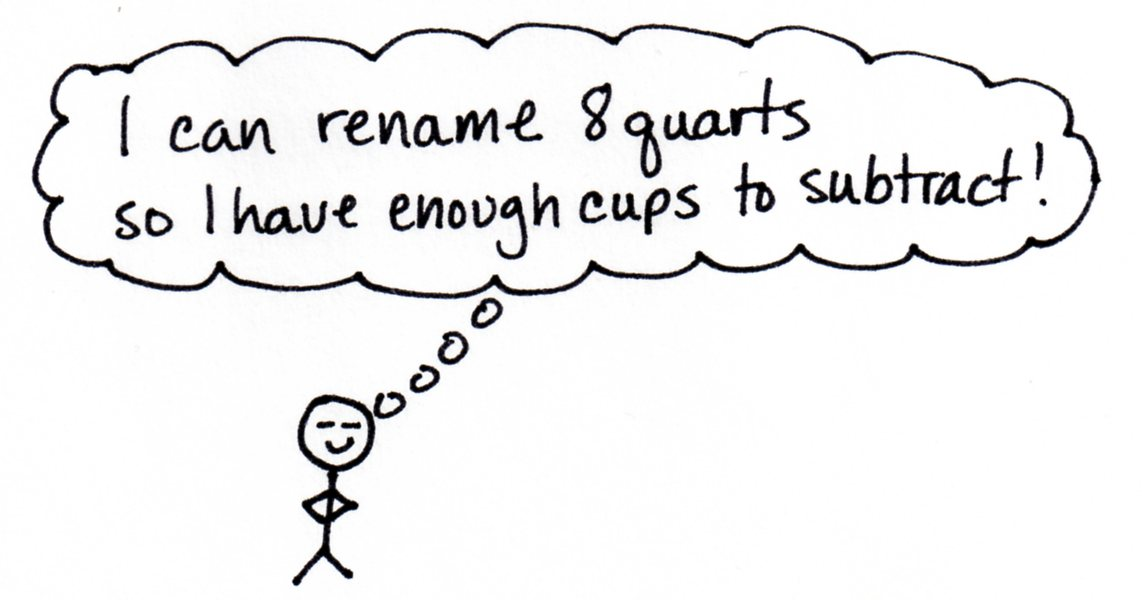 I can rename 8 quarts
so I have enough cups to subtract!